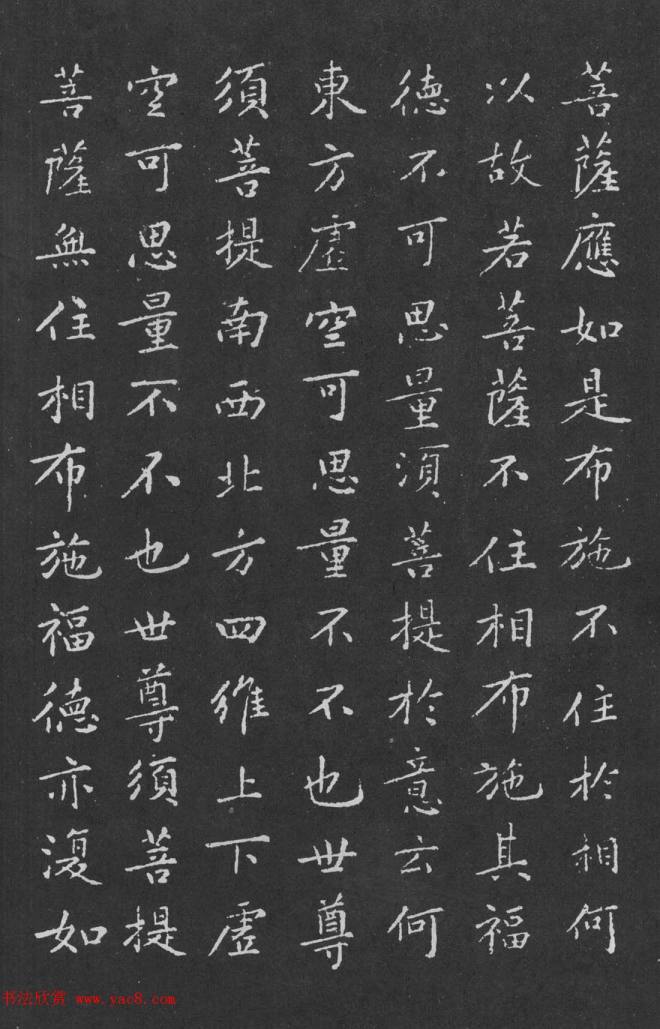 菩薩應如是布施不住於相何
以故若菩薩不住相布施其福
德不可思量須菩提於意云何
東方虛空可思量不不也世尊
須菩提南西北方四維上下虛
空可思量不不也世尊須菩提
菩薩無住相布施福德亦復如
书法欣赏 www.yac8.com